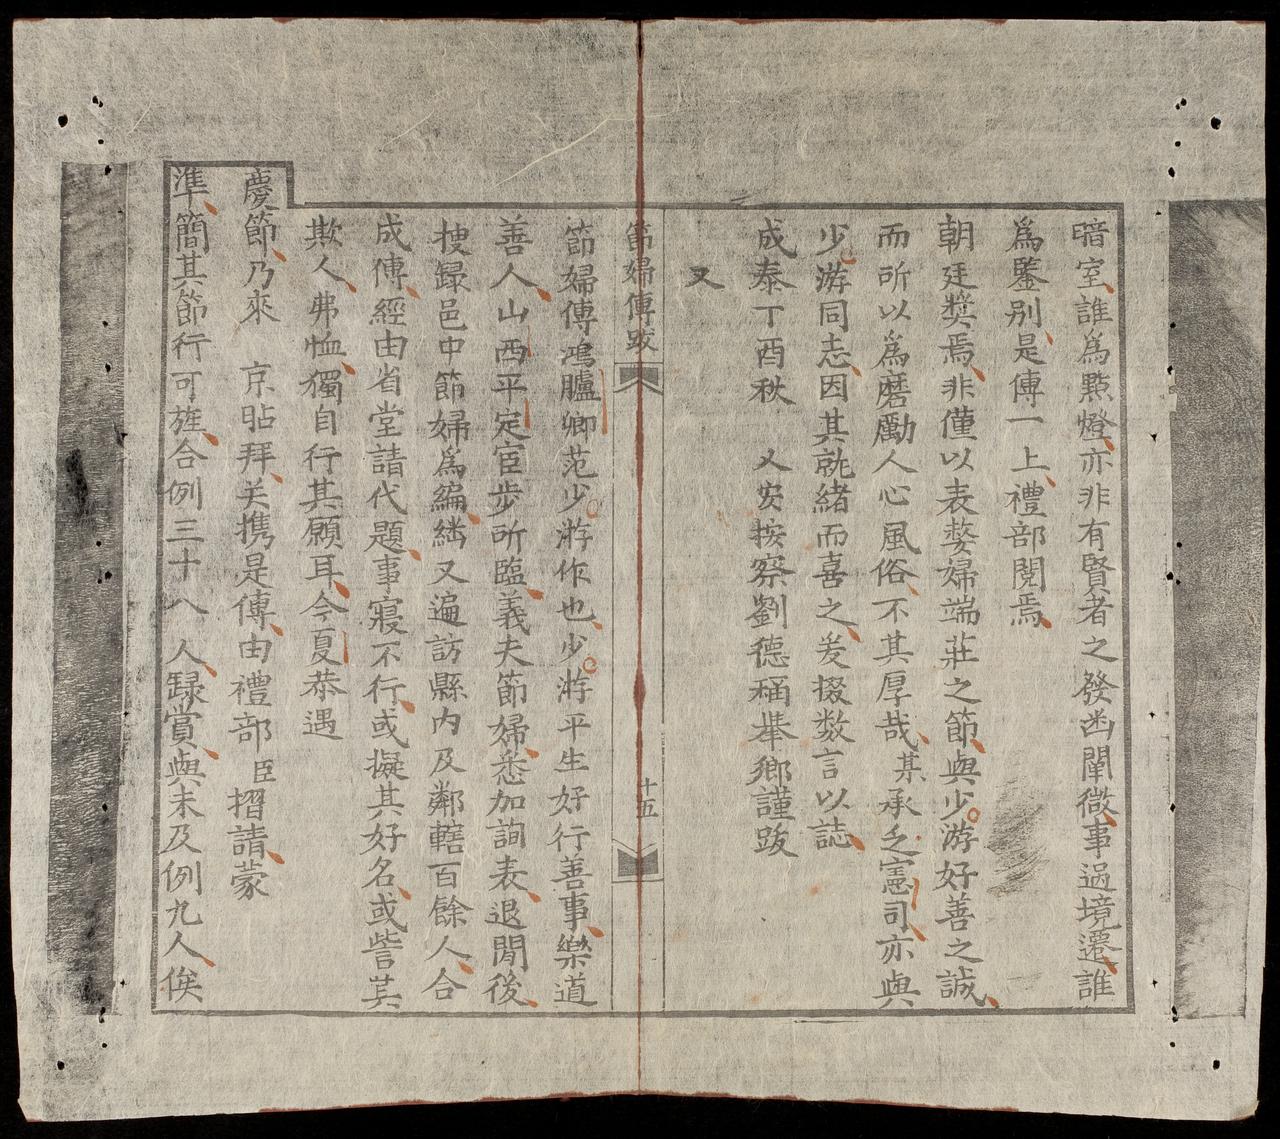 暗室誰爲㸃燈亦非有賢者之發幽闡微事過境遷誰
爲鑒别是傳一上禮部閱焉
朝廷奬焉非僅以表嫠婦端莊之節與少游好善之誠
而所以爲磨勵人心風俗不其厚哉某承乏憲司亦與
少游同志因其就緒而喜之爰掇数言以誌
成泰丁酉秋 乂安按察劉德稱舉鄉謹跋
又
節婦傳跋
十五
節婦傳鴻臚卿范少游作也少游平生好行善事樂道
善人山西平定宦步所臨義夫節婦悉加詢表退閒後
搜録邑中節婦爲編繼又遍訪縣内及鄰轄百餘人合
成傳經由省堂請代題事寢不行或擬其好名或訾其
欺人弗恤獨自行其願耳今夏恭遇
慶節乃來 京呫拜关携是傳由禮部臣摺請蒙
準簡其節行可旌合例三十八人録賞與未及例九人俟